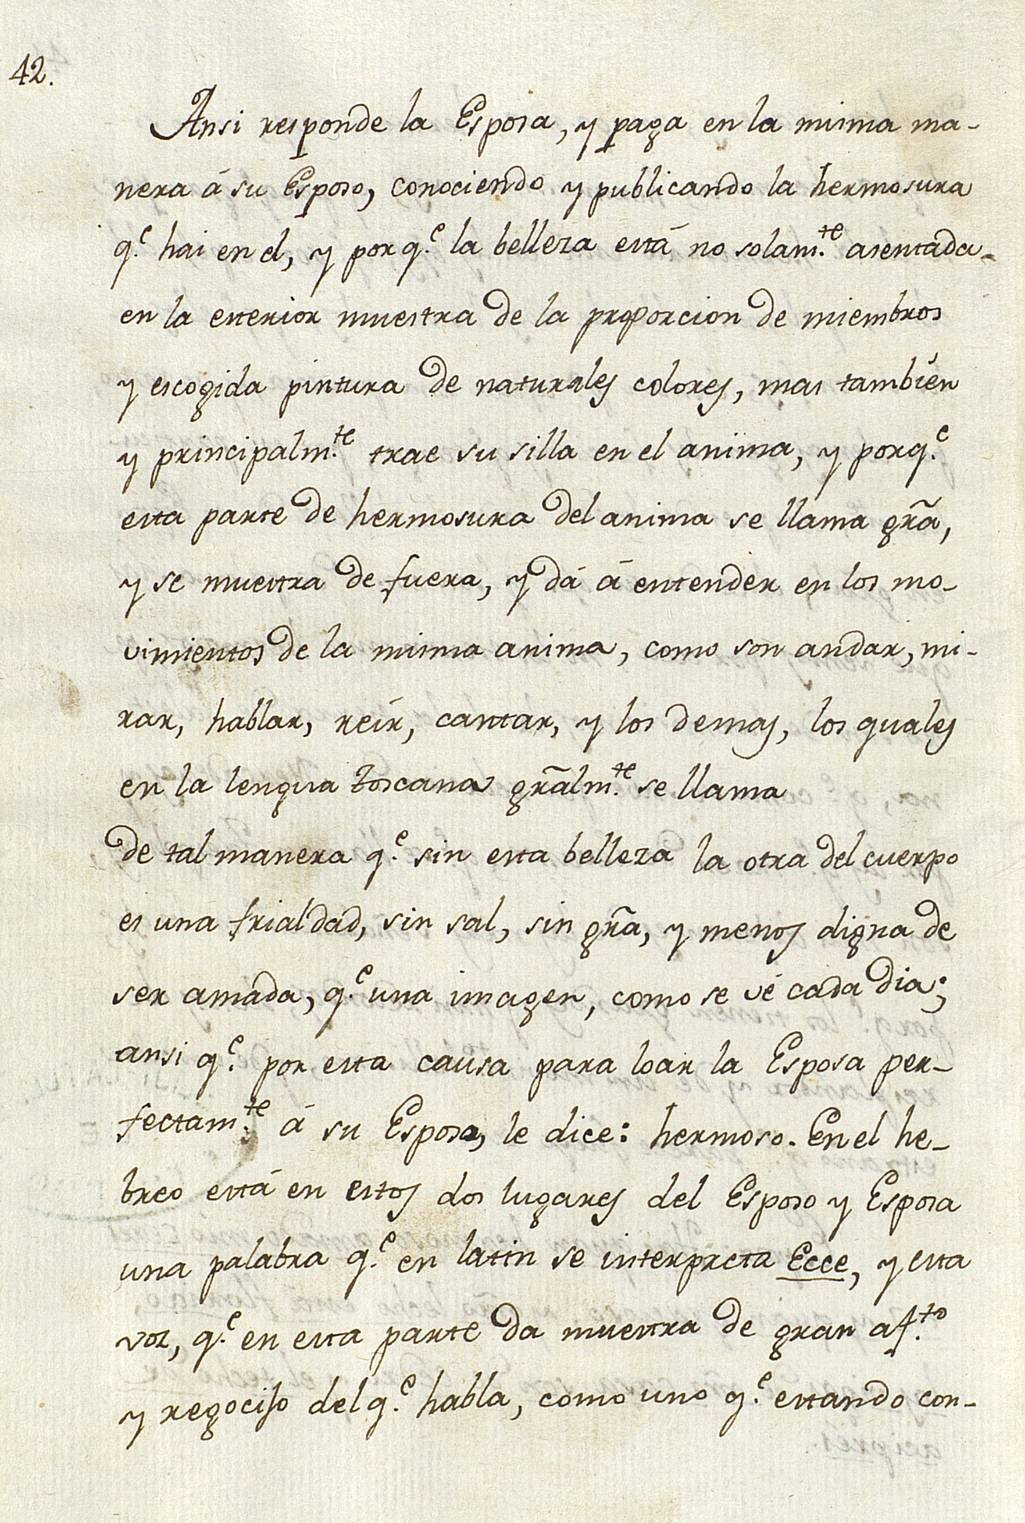 42.
Ansi responde la Esposa, y paga en la misma ma-
nera á su Esposo, conociendo y publicando la hermosura
q.e hai en el, y porq.e la belleza está no solam.te asentada
en la exterior muestra de la proporcion de miembros
y escogida pintura de naturales colores, mas tambien
y principalm.te trae su silla en el anima, y porq.e
esta parte de hermosura del anima se llama grã,
y se muestra de fuera, y dá á entender en los mo-
vimientos de la misma anima, como son andar, mi-
rar, hablar, reír, cantar, y los demas, los quales
en la lengua toscana grãlm.te se llama
de tal manera q.e sin esta belleza la otra del cuerpo
es una frialdad, sin sal, sin grã, y menos digna de
ser amada, q.e una imagen, como se vé cada dia;
ansi q.e por esta causa para loar la Esposa per-
fectam.te á su Esposo, le dice: hermoso. En el he-
breo está en estos dos lugares del Esposo y Esposa
una palabra q.e en latin se interpreta Ecce, y esta
voz, q.e en esta parte da muestra de gran af.to
y regocijo del q.e habla, como uno q.e estando con-